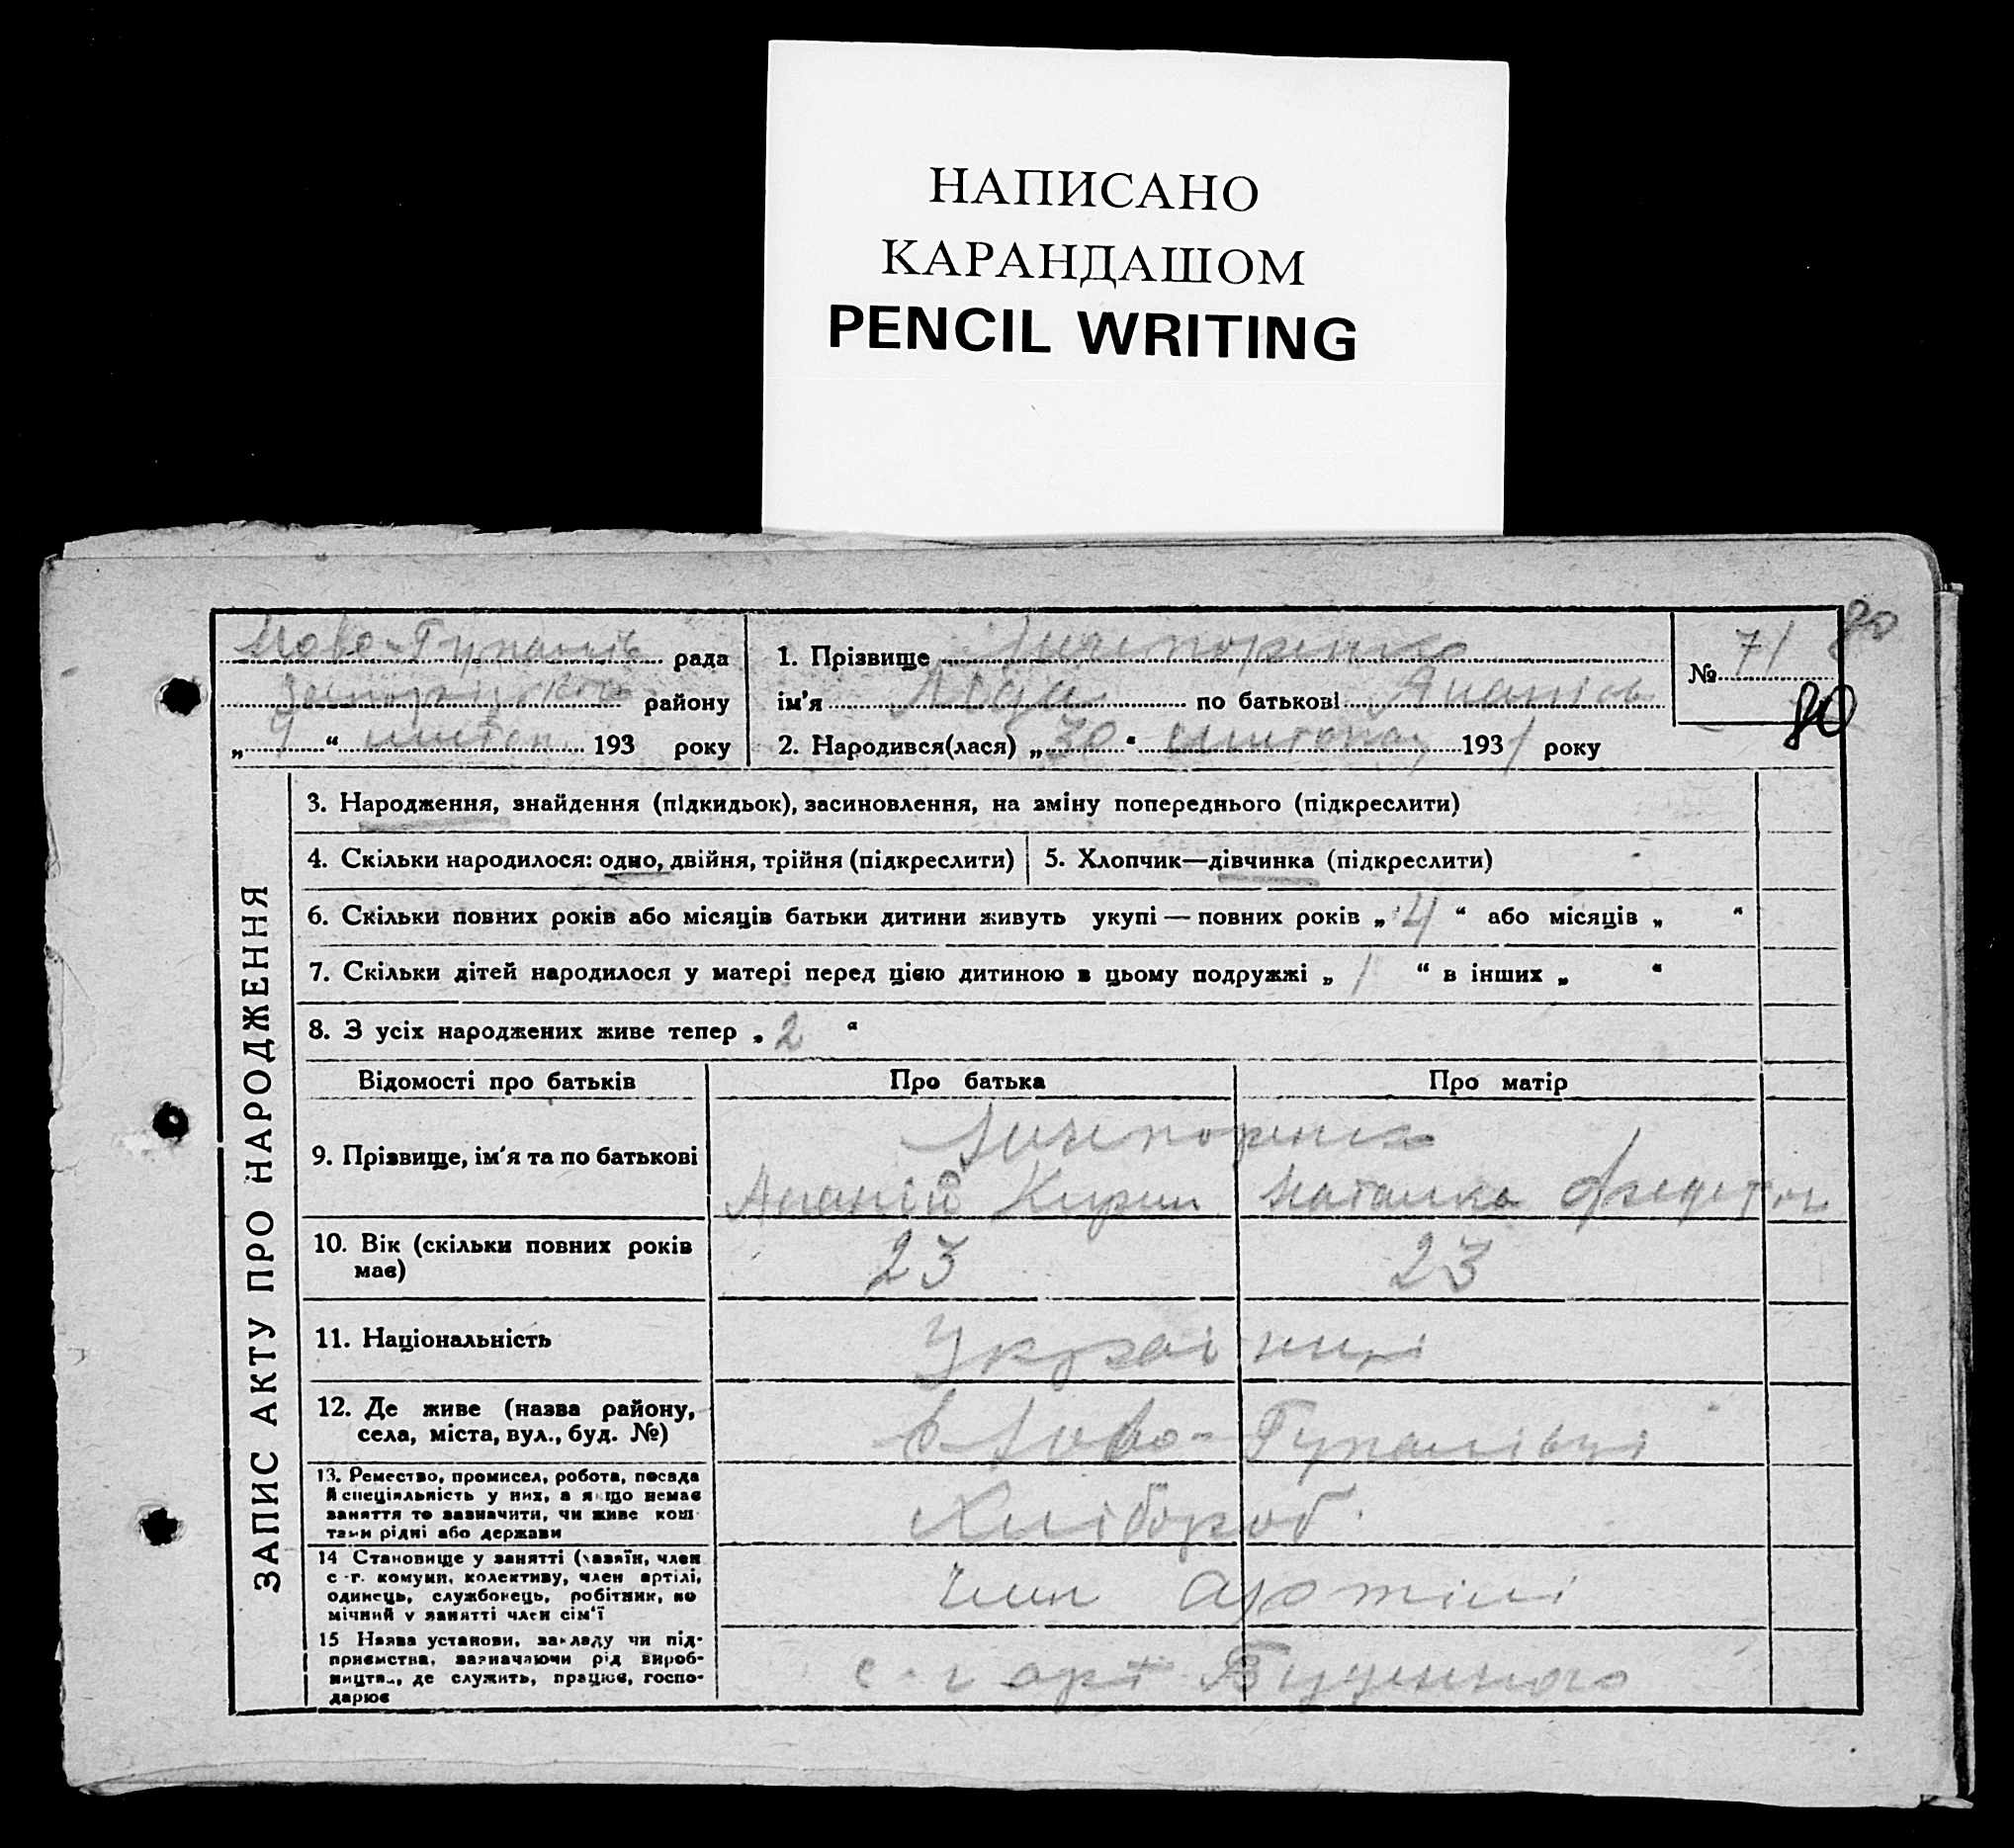 НАПИСАНО
КАРАНДАШОМ
PENCIL WRITING
80
Ново-Гупалів рада
району
„ 9 “ листоп 193 року
1. Прізвище Ничепоренко
ім'я Ліда по батькові Ананіов
2. Народився(лася) „ 30 “ 1931 року
№ 71
80
ЗАПИС АКТУ ПРО НАРОДЖЕННЯ
3. Народження, знайдення (підкидьок), засиновлення, на зміну попереднього (підкреслити)
4. Скільки народилося: одно, двійня, трійня (підкреслити)
5. Хлопчик—дівчинка (підкреслити)
6. Скільки повних років або місяців батьки дитини живуть укупі — повних років „ 4 “ або місяців „ “
7. Скільки дітей народилося у матері перед цією дитиною в цьому подружжі „ 1 “ в інших „ “
8. З усіх народжених живе тепер „ 2 “
Відомості про батьків Про батька Про матір
9. Прізвище, ім'я та по батькові
Ничепоренко
Ананій Кирил Наталка
10. Вік (скільки повних років
має)
23 23
11. Національність
Українці
12. Де живе (назва району,
села, міста, вул., буд. №)
с Ново-Гупалівці
13. Ремество, промисел, робота, посада
й спеціяльність у них, а якщо немає
заняття то зазначити, чи живе кош-
тами рідні або держави
Хлібороб
14 Становище у занятті (хазяїн, член
с.-г. комуни, колективу, член артілі,
одинець, службовець, робітник, по
мічний у занятті член сім'ї
член артілі
15 Назва установи, закладу чи під-
приємства, зазначаючи рід вироб-
ництва, де служить, працює, госпо-
дарює
с г арт Буденного